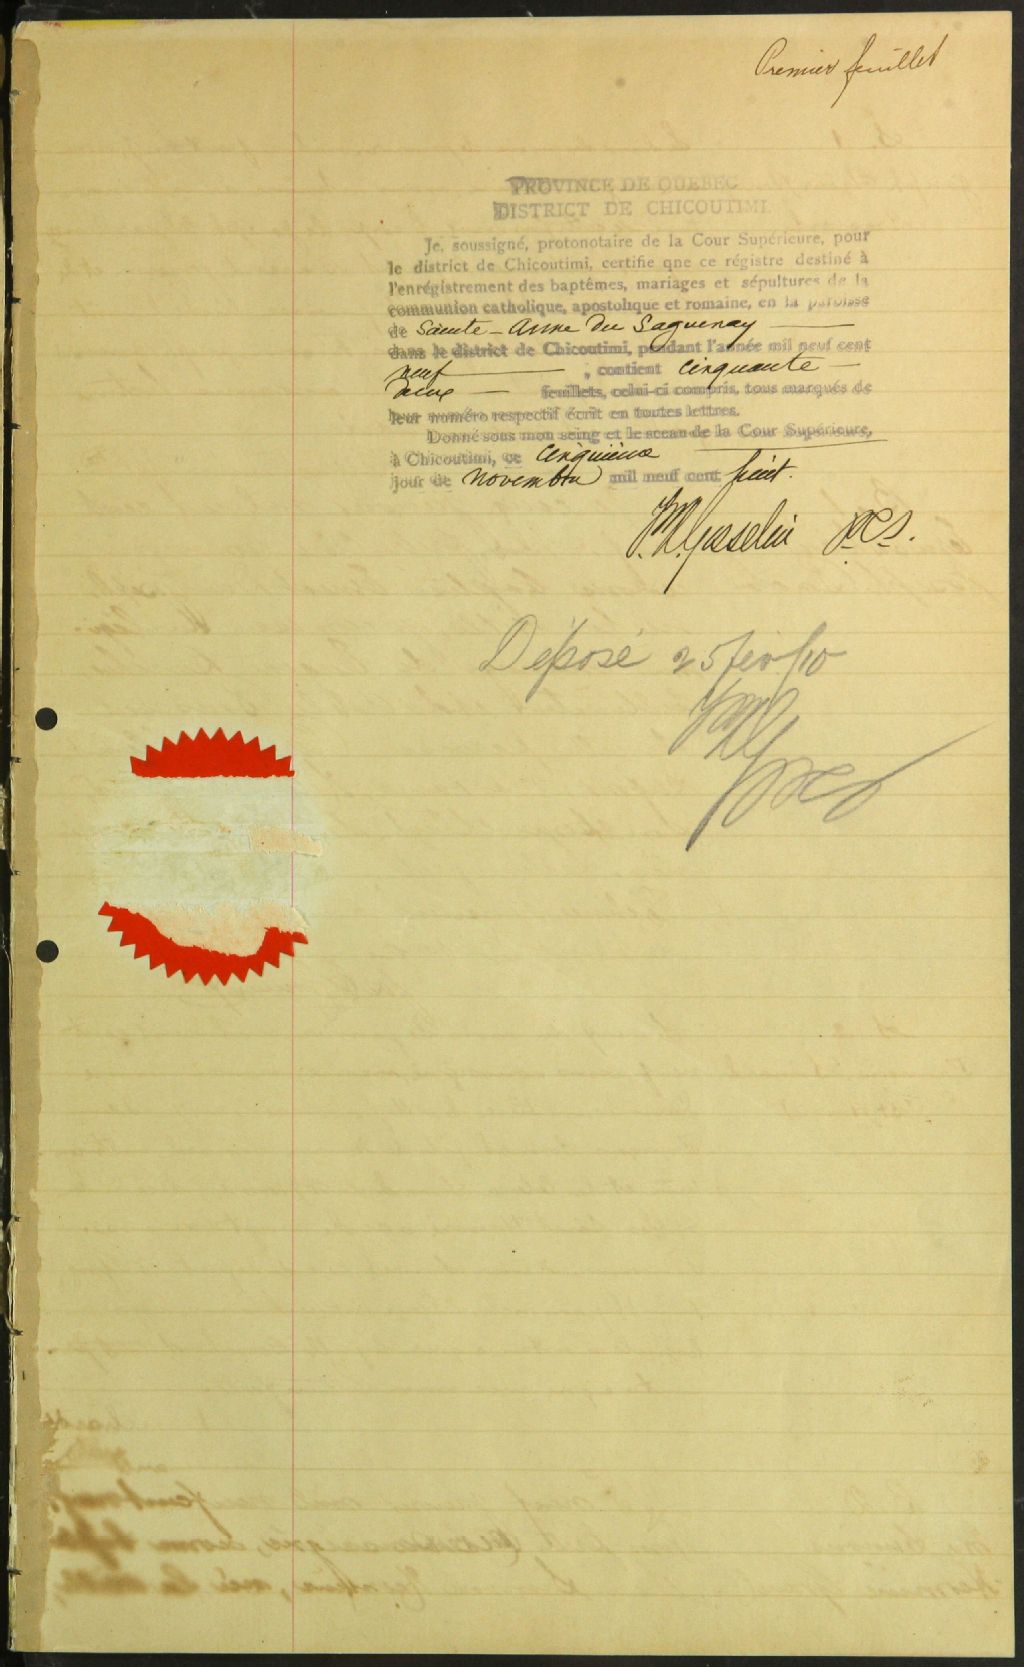 Premier feuillet
PROVINCE DE QUEBEC
DISTRICT DE CHICOUTIMI
Je, soussigné, protonotaire de la Cour Supérieure, pour
le district de Chicoutimi, certifie qne ce régistre destiné à
l'enrégistrement des baptêmes, mariages et sépultures de la
communion catholique, apostolique et romaine, en la paroisse
de Sainte-Anne du Saguenay
dans le district de Chicoutimi, pendant l'année mil neuf cent
neuf , contient cinquante
deux feuillets, celui-ci compris, tous marqués de
leur numéro respectif écrit en toutes lettres.
Donné sous mon seing et le sceau de la Cour Supérieure,
à Chicoutimi, ce cinquième
jour de novembre mil neuf cent huit.
Gosselin P.C.S.
Déposé 25 fev/10